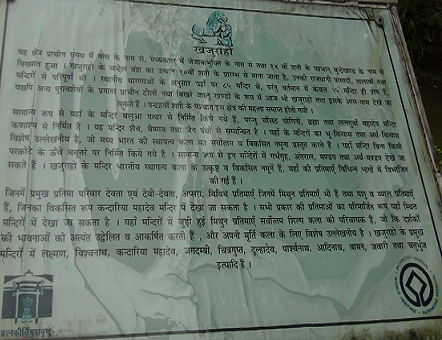 खजुराहो
यह क्षेत्र प्राचीन समय में वत्स के नाम से, मध्यकाल में जेजाकभुक्ति के नाम से तथा १४ वीं शती के पश्चात् बुन्देलखण्ड के नाम से
विख्यात हुआ । खजुराहो के चन्देल वंश का उत्थान १०वीं शती के प्रारम्भ से माना जाता है, उनकी राजधानी प्रासादों, तालाबों तथा
मंदिरों से परिपूर्ण थी । स्थानीय धारणाओं के अनुसार यहाँ पर ८५ मन्दिर थे, परंतु वर्तमान में केवल २५ मन्दिर ही शेष हैं
यद्यपि अन्य पुरावशेषों के प्रमाण प्राचीन टीलों तथा बिखरे वास्तु खण्डों के रूप में आज भी खजुराहो तथा इसके आस-पास देखे जा
सकते हैं । पन्द्रहवीं शती के पश्चात् इस क्षेत्र की महत्ता समाप्त होती गयी ।
सामान्य रूप से यहां के मंदिर बलुआ पत्थर से निर्मित किये गये हैं, परन्तु चौंसट योगिनी, ब्रह्मा तथा ललगुआँ महादेव मन्दिर
कणाश्म से निर्मित हैं । यह मन्दिर शैव, वैष्णव तथा जैन पंथों से सम्बन्धित है । यहाँ के मंदिरों का भू-विन्यास तथा अर्ध-विन्यास
विशेष उल्लेखनीय है, जो मध्य भारत की स्थापत्य कला का सर्वोत्तम व विकसित नमूना प्रस्तुत करते हैं । यहाँ मन्दिर बिना किसी
परकोटे के ऊँचे चबूतरे पर निर्मित किये गये हैं । सामान्य रूप से इन मंदिरों में गर्भगृह, अंतराल, मण्डप तथा अर्ध-मण्डप देखे जा
सकते हैं । खजुराहो के मन्दिर भारतीय स्थापत्य कला के उत्कृष्ट व विकसित नमूने हैं, यहाँ की प्रतिमायें विभिन्न भागों में विभाजित
की गई हैं ।
जिनमें प्रमुख प्रतिमा परिवार देवता एवं देवी-देवता, अप्सरा, विविध प्रतिमायें जिनमें मिथुन प्रतिमायें भी हैं तथा पशु व व्याल प्रतिमायें
हैं, जिनका विकसित रूप कन्दारिया महादेव मन्दिर में देखा जा सकता है । सभी प्रकार की प्रतिमाओं का परिमार्जित रूप यहाँ स्थित
मन्दिरों में देखा जा सकता है । यहाँ मन्दिरों में जुड़ी हुई मिथुन प्रतिमायें सर्वोत्तम शिल्प कला की परिचायक है, जो कि दर्शकों
की भावनाओं को अत्यंत उद्वेलित व आकर्षित करती हैं, और अपनी मूर्ति कला के लिए विशेष उल्लेखनीय है । खजुराहो के प्रमुख
मन्दिरों में लक्ष्मण, विश्वनाथ, कन्दारिया महादेव, जगदम्बी, चित्रगुप्त, दूल्हादेव, पार्श्वनाथ, आदिनाथ, वामन, जवारी तथा चतुर्भुज
इत्यादि हैं ।
प्रत्नकीर्तिमपावृणु